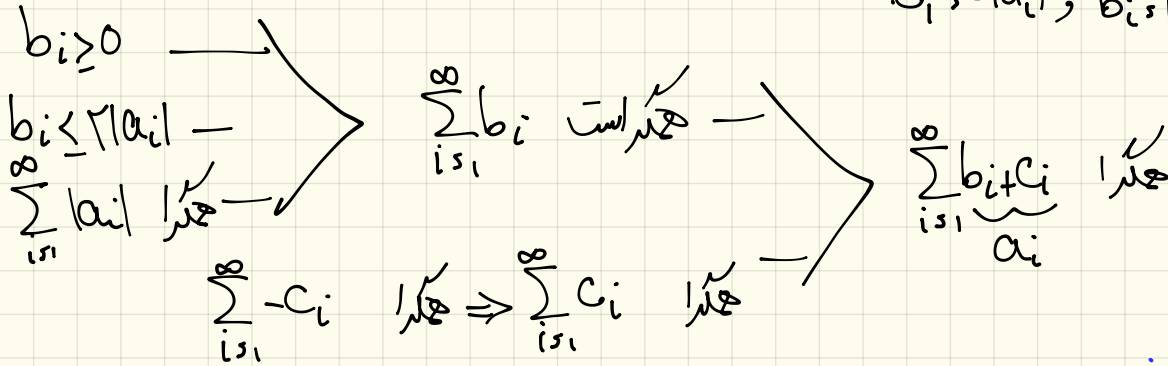 b_i ≥ 0
b_i ≤ ۲|a_i|
∑_{i=1}^{∞} |a_i| همگرا
∑_{i=1}^{∞} b_i همگراست
∑_{i=1}^{∞} -c_i همگرا ⇒ ∑_{i=1}^{∞} c_i همگرا
∑_{i=1}^{∞} b_i + c_i همگرا
a_i